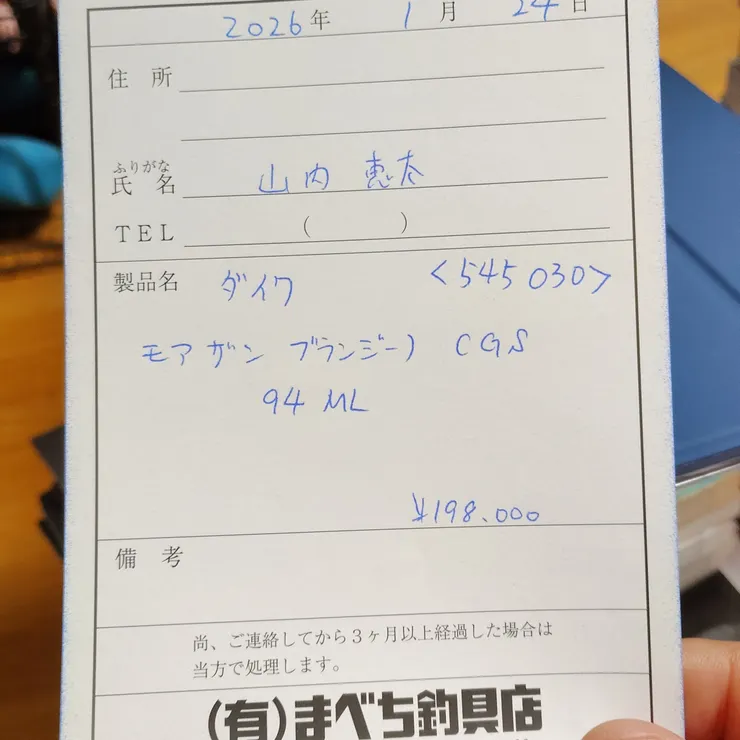 2026年 1月 24日
住 所
ふりがな
氏 名 山内 恵太
TEL ( )
製品名 ダイワ <545030>
モアザン ブランジーノ CGS
94 ML
¥198.000
備 考
尚、ご連絡してから3ヶ月以上経過した場合は
当方で処理します。
(有)まべち釣具店